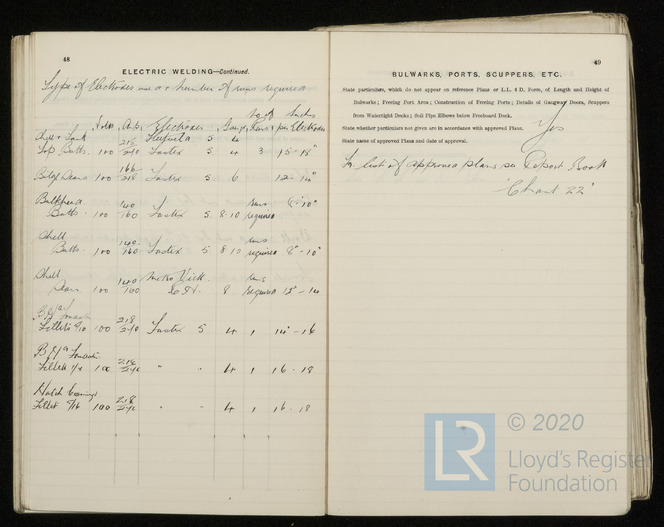 48
ELECTRIC WELDING—Continued.
Type of Electrodes used & number of runs required
Volts Amps Electrodes Gauge Runs per Electrode
No of Inches
Top Butts. 100 240 Fastex 5 4 3 15-18"
218 Fastex 5 6 12-14"
Bulkhead 140 runs 8"-10"
Butts 100 160 Fastex 5 8-10 required
Shell 140 runs
Butts. 100 160 Fastex 5 8 10 required 8"-10"
Shell 140 Metro Vick runs
100 160 8 required 12"-14
218
Fillets 100 240 Fastex 5 4 1 14"-16
218
Fillets 100 240 " " 4 1 16-18
Hatch Coamings 218
Fillet 9/16 100 240 " " 4 1 16-18
49
BULWARKS, PORTS, SCUPPERS, ETC.
State particulars, which do not appear on reference Plans or L.L. 4 D. Form, of Length and Height of
Bulwarks; Freeing Port Area; Construction of Freeing Ports; Details of Gangway Doors, Scuppers
from Watertight Decks; Soil Pipe Elbows below Freeboard Deck.
State whether particulars not given are in accordance with approved Plans. Yes
State name of approved Plans and date of approval.
list of approved plans see Report Book
'Chant 22'
© 2020
LR
Lloyd's Register
Foundation